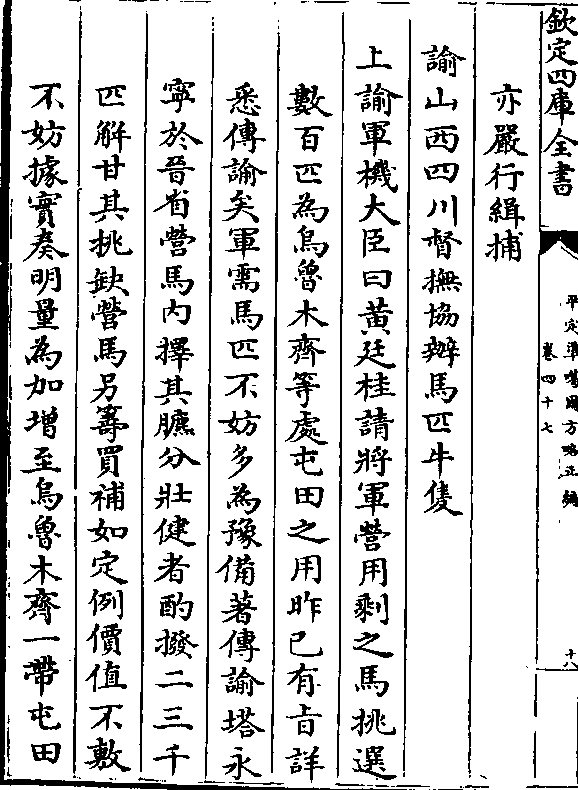 欽定四庫全書
平定準噶爾方略正編
卷四十七
十八
亦嚴行緝捕
諭山西四川督撫協辦馬匹牛隻
上諭軍機大臣曰黃廷桂請將軍營用剩之馬挑選
數百匹為烏魯木齊等處屯田之用昨已有旨詳
悉傳諭矣軍需馬匹不妨多為豫備著傳諭塔永
寧於晉省營馬内擇其臕分壯健者酌撥二三千
匹解甘其挑缺營馬另籌買補如定例價值不敷
不妨據實奏明量為加增至烏魯木齊一帶屯田